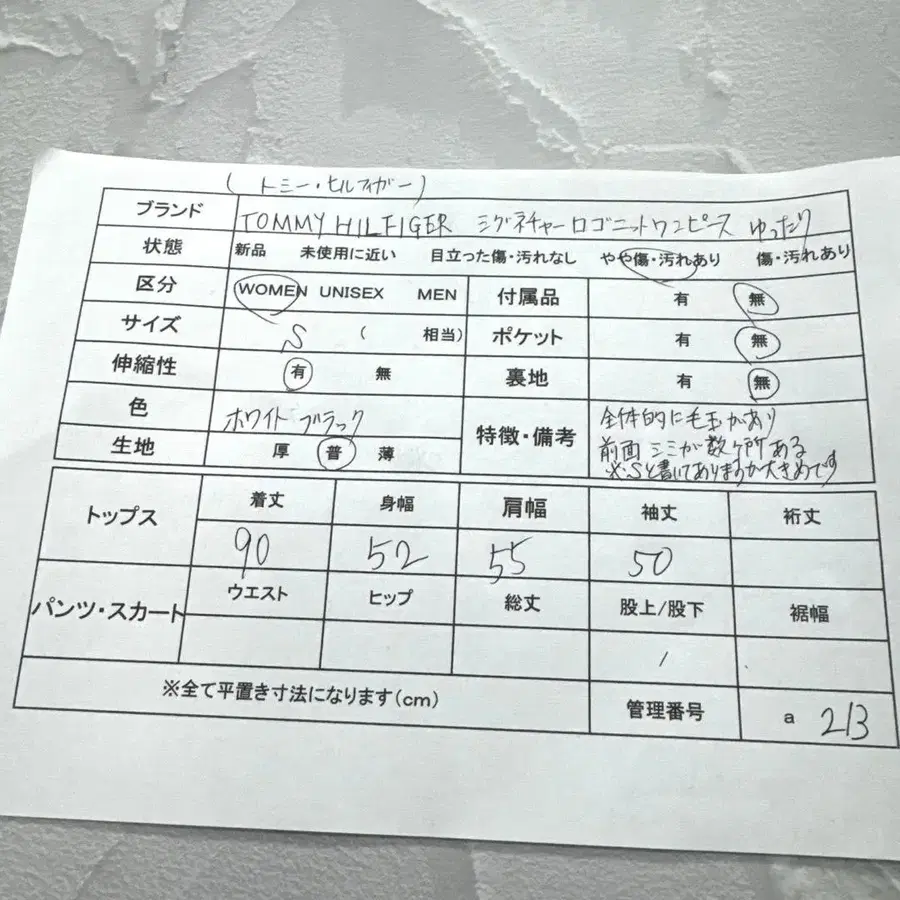 (トミー・ヒルフィガー)
ブランド TOMMY HILFIGER シグネチャーロゴニットワンピース ゆったり
状態 新品 未使用に近い 目立った傷・汚れなし やや傷・汚れあり 傷・汚れあり
区分 WOMEN UNISEX MEN 付属品 有 無
サイズ S ( 相当) ポケット 有 無
伸縮性 有 無 裏地 有 無
色 ホワイト ブラック 特徴・備考 全体的に毛玉があり
前面 シミが数ヶ所ある
※Sと書いてありますが大きめです
生地 厚 普 薄
トップス 着丈 身幅 肩幅 袖丈 裄丈
90 52 55 50
パンツ・スカート ウエスト ヒップ 総丈 股上/股下 裾幅
/
※全て平置き寸法になります(cm) 管理番号 a 213